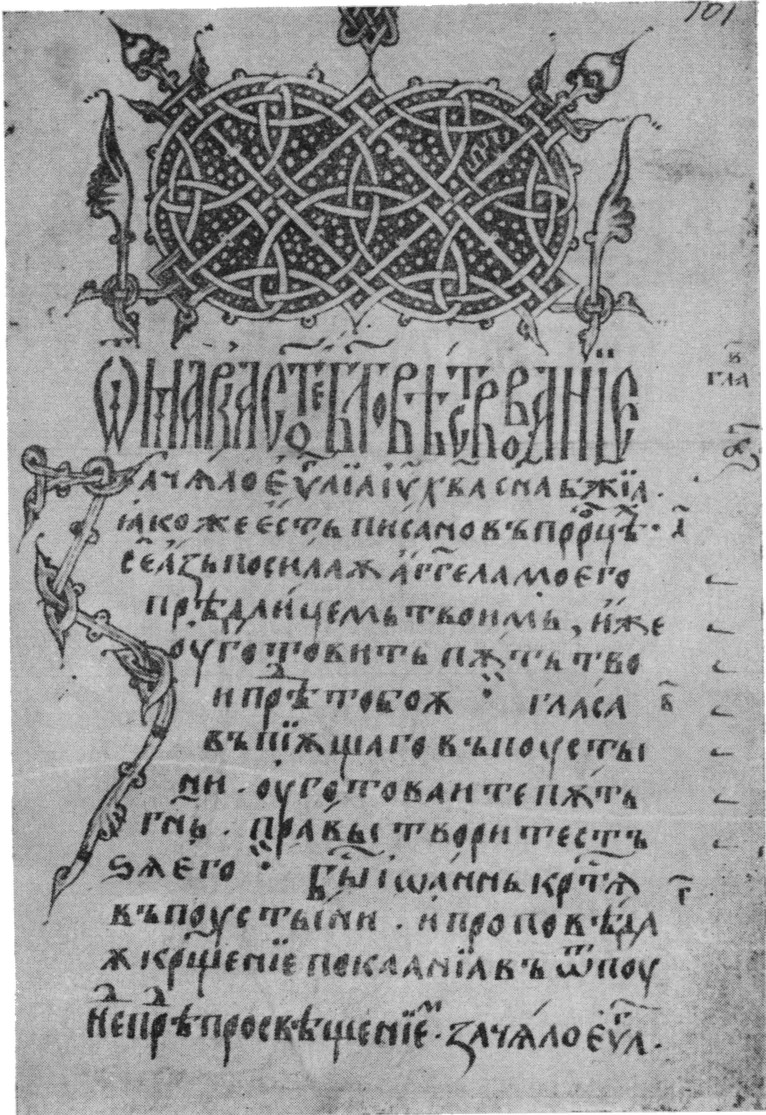 101
Ѿ МАРКА СТ҃Е БЛ҃ГОВѢСТВОВАНЇЕ
в҃ ГЛА
ЗАЧѦЛО ЕѴ҃Л҄ЇА ІѴ҃ Х҃ВА С҃НА Б҃ЖЇА.
ꙖКОЖЕ ЕСТЬ ПИСАНО ВЪ ПРⷪ҇РЦѢ· а҃
СЕ АꙀЬ ПОСИЛАѪ АГГЕЛА МОЕГО
ПРѢⷣ ЛИЦЕМЬ ТВОИМЬ, ИЖЕ
ОУГОТОВИТЬ ПѪТЬ ТВО
И ПРѢⷣ ТОБОѪ ГЛАСА в҃
ВЪПЇѪЩАГО ВЪ ПОУСТЫ
НИ· ОУГОТОВАИТЕ ПѪТЬ
Г҃НЬ· ПРАВЫ СТВОРИТЕ СТЪ
ЅѦ ЕГО БЫⷭ҇ ІѠАННЬ КРⷭ҇ТѦ г҃
ВЪ ПОУСТЫНИ· И ПРОПОВѢДА
Ѫ КР҃ЩЕНЇЕ ПОКААНЇА ВЪ Ѿ̑ПОУ
НЕⷣ ПРѢⷣ ПРОСВѢЩЕНЇЕⷨ· ꙀАЧѦЛО ЕѴⷢ҇Л·